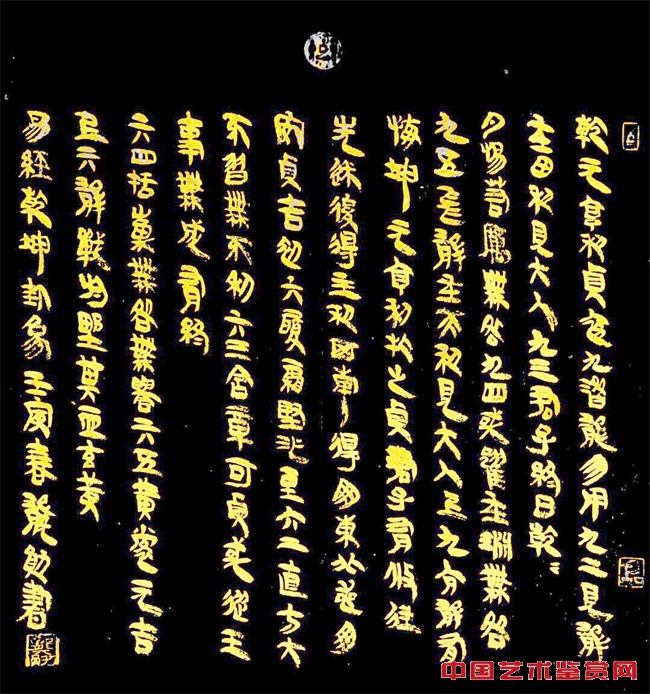 乾元亨利貞初九潛龍勿用九二見龍
在田利見大人九三君子終日乾〻
夕惕若厲無咎九四或躍在淵無咎
九五飛龍在天利見大人上九亢龍有
悔坤元亨利牝之貞君子有攸往
先迷後得主利西南〻得朋東北喪朋
安貞吉初六履霜堅冰至六二直方大
不習無不利六三含章可貞或從王
事無成有終
六四括囊無咎無譽六五黃裳元吉
上六龍戰於野其血玄黃
易經乾坤卦象壬寅春書
中国艺术鉴赏网